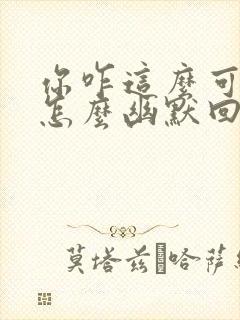 你咋這麼可
怎麼幽默回
莫塔兹 哈萨